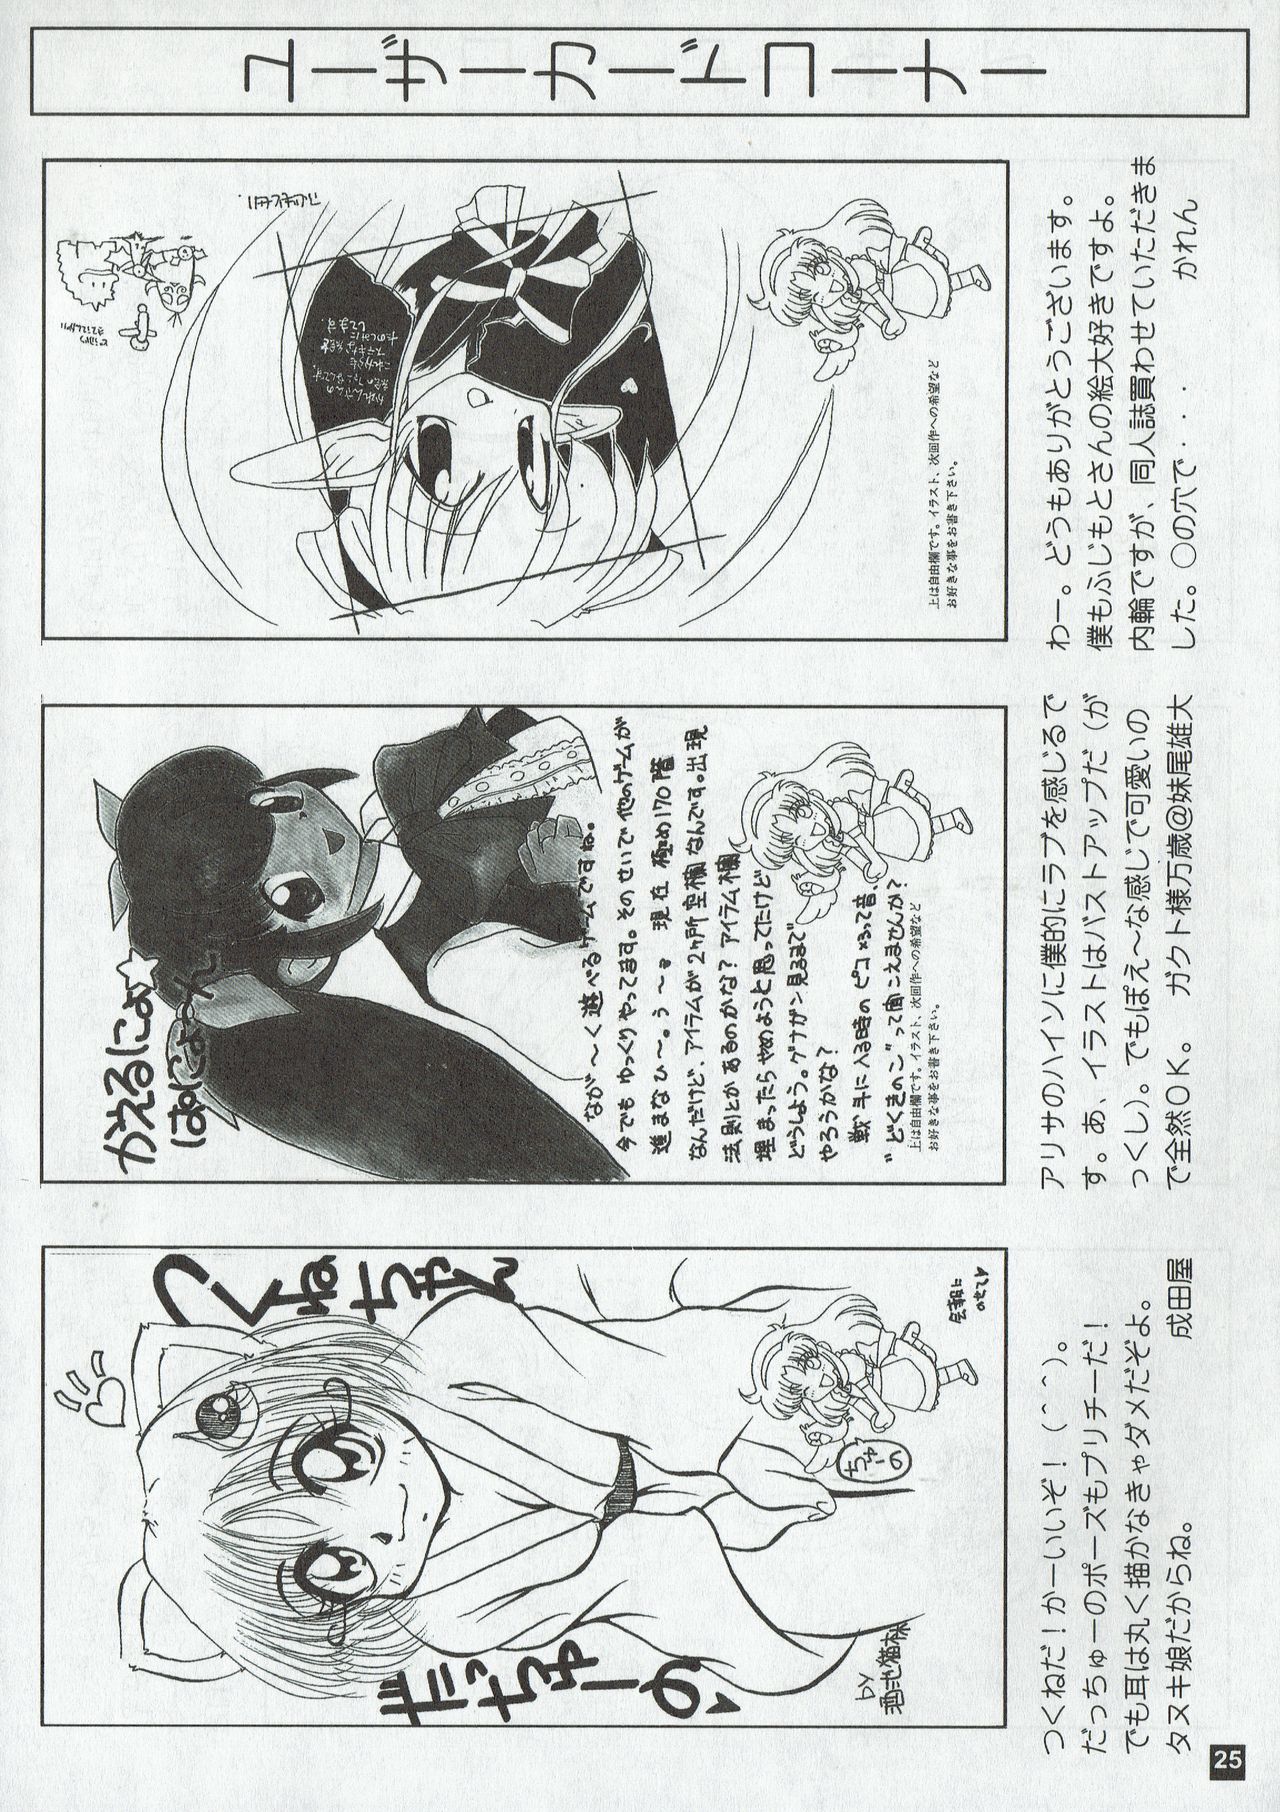 ユーザーカードコーナー
つくねちゃん
だっちゅーの
ちゅーの
by
会報に
のせて
上は自由欄です。イラスト、次回作への希望など
お好きな事をお書き下さい。
つくねだ！かーいいぞ！(^^)。
だっちゅーのポーズもプリチーだ！
でも耳は丸く描かなきゃダメだぞよ。
タヌキ娘だからね。　成田屋
かえるにょ
はにょ〜ん
なが〜く遊べるゲームですね。
今でもゆっくりやってます。そのせいで他のゲームが
進まなひ〜。う〜。現在 極め170階
なんだけど、アイテムが2ヶ所空欄なんです。出現
法則とかあるのかな？アイテム欄
埋まったらやめようと思ってたけど
どうしよう。グナガン見るまで
やろうかな？
戦斗に入る時のピコxろって音、
"どくきのこ"って聞こえませんか？
上は自由欄です。イラスト、次回作への希望など
お好きな事をお書き下さい。
アリサのハイソに僕的にラブを感じるで
す。あ、イラストはバストアップだ（が
っくし）。でもぽえ〜な感じで可愛いの
で全然OK。　ガクト様万歳@妹尾雄大
かれんさんの
これからも
ステキな絵を
たのしみに
してます。
上は自由欄です。イラスト、次回作への希望など
お好きな事をお書き下さい。
わー。どうもありがとうございます。
僕もふじもとさんの絵大好きですよ。
内輪ですが、同人誌買わせていただきま
した。○の穴で・・・　かれん
25